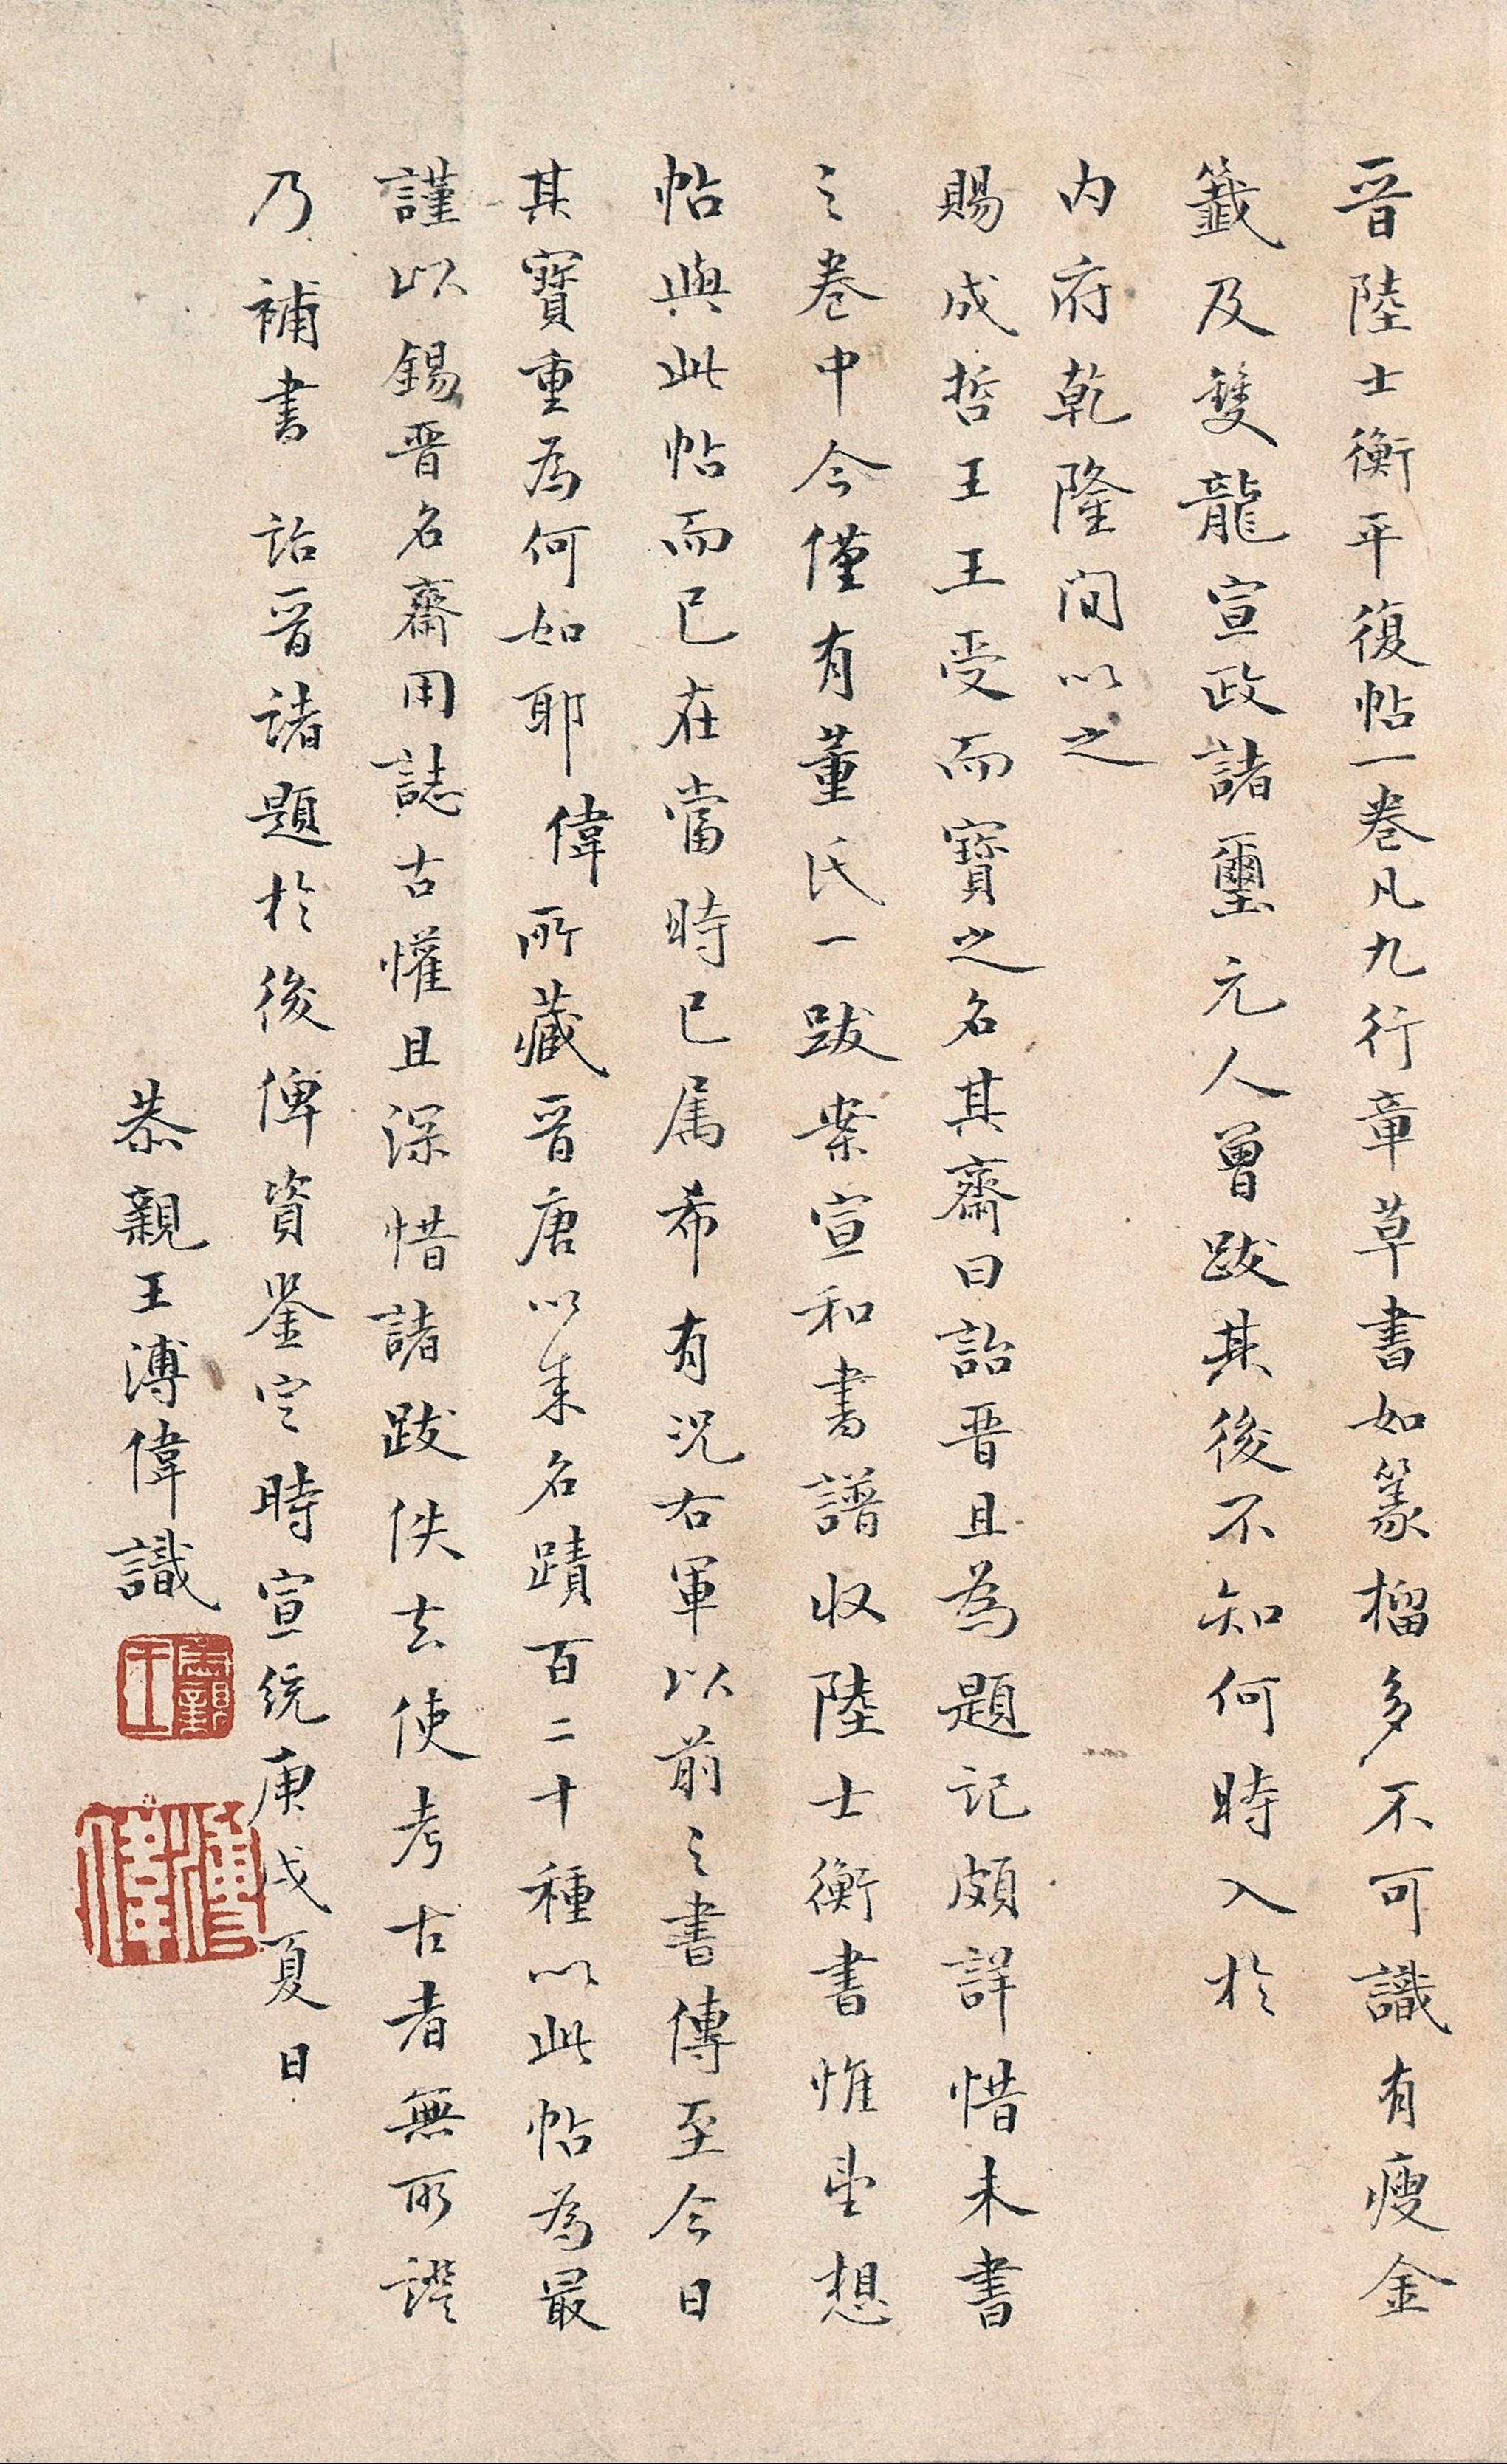 晉陸士衡平復帖一卷凡九行章草書如篆榴多不可識有瘦金
籤及雙龍宣政諸璽元人曾跋其後不知何時入於
內府乾隆間以之
賜成哲王王受而寶之名其齋曰詒晉且為題記頗詳惜未書
之卷中今僅有董氏一跋案宣和書譜收陸士衡書惟望想
帖與此帖而已在當時已屬希有況右軍以前之書傳至今日
其寶重為何如耶偉所藏晉唐以來名蹟百二十種以此帖為最
謹以錫晉名齋用誌古懽且深惜諸跋佚去使考古者無所證
乃補書詒晉諸題於後俾資鑒定時宣統庚戌夏日
恭親王溥偉識
恭親王
溥偉